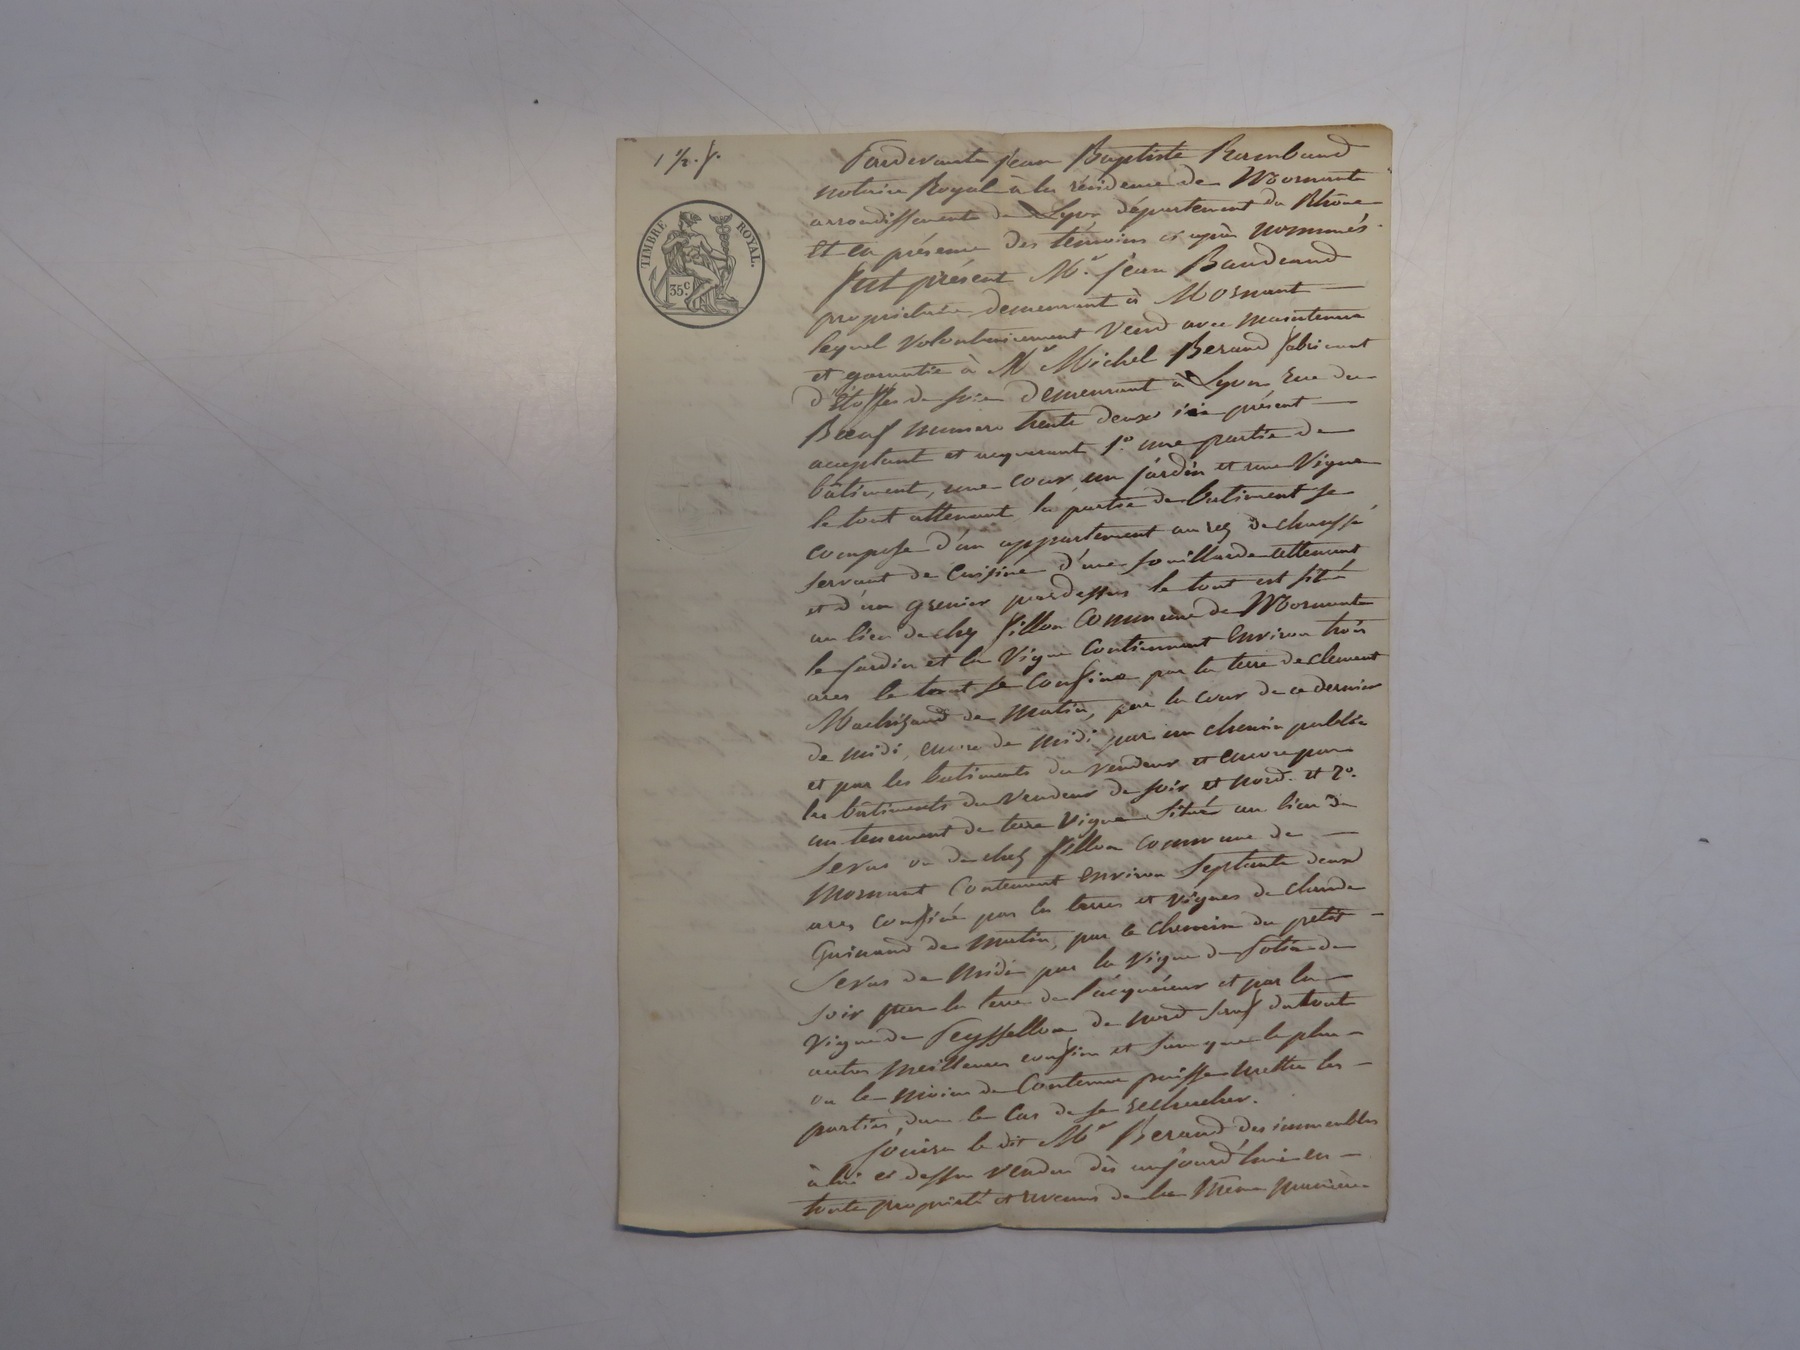 1 1/2. f.
TIMBRE ROYAL.
35c.
Pardevant Jean Baptiste Rambaud
notaire Royal à la résidence de Mornant
arrondissement de Lyon département du Rhône
Et en présence des témoins ci après nommés.
fut présent Mr. Jean Baudrand
propriétaire demeurant à Mornant —
lequel volontairement vend avec maintenue
et garantie à Mr Michel Beraud fabricant
d'Etoffes de soie demeurant à Lyon rue du
Bœuf numero trente deux ici présent —
acceptant et acquerant 1o. une partie de
bâtiment, une cour, un jardin et une Vigne
le tout attenant la partie de batiment se
compose d'un appartement au rez de chaussé
servant de Cuisine d'une souillarde attenant
et d'un grenier pardessus le tout est situé
au lieu de chez fillon Commune de Mornant
le jardin et la Vigne Contiennent environ trois
ares le tout se Confine par la terre de Clement
de Matin, par la cour de ce dernier
de midi, encore de midi par un chemin public
et par les batiments du vendeur et encore par
les bâtiments du Vendeur de soir et nord. et 2o.
un tenement de terre Vigne située au lieu de
Seras ou de chez fillon commune de —
Mornant Contenant environ septante deux
ares confiné par les terres et vignes de Claude
Guinand de Matin, par le Chemin du petit —
Seras de Midi par la Vigne de de
soir par la terre de l'acquéreur et par la —
Vigne de Peyssellon de nord sauf du tout
autres meilleurs confins et sans que le plus —
ou le moins de Contenue puisse mettre les —
parties, dans le Cas de se rechercher.
Jouira le dit Mr Béraud des immeubles
à lui ci dessus vendus dès aujourd'hui en —
toute propriété et revenus de la même manière